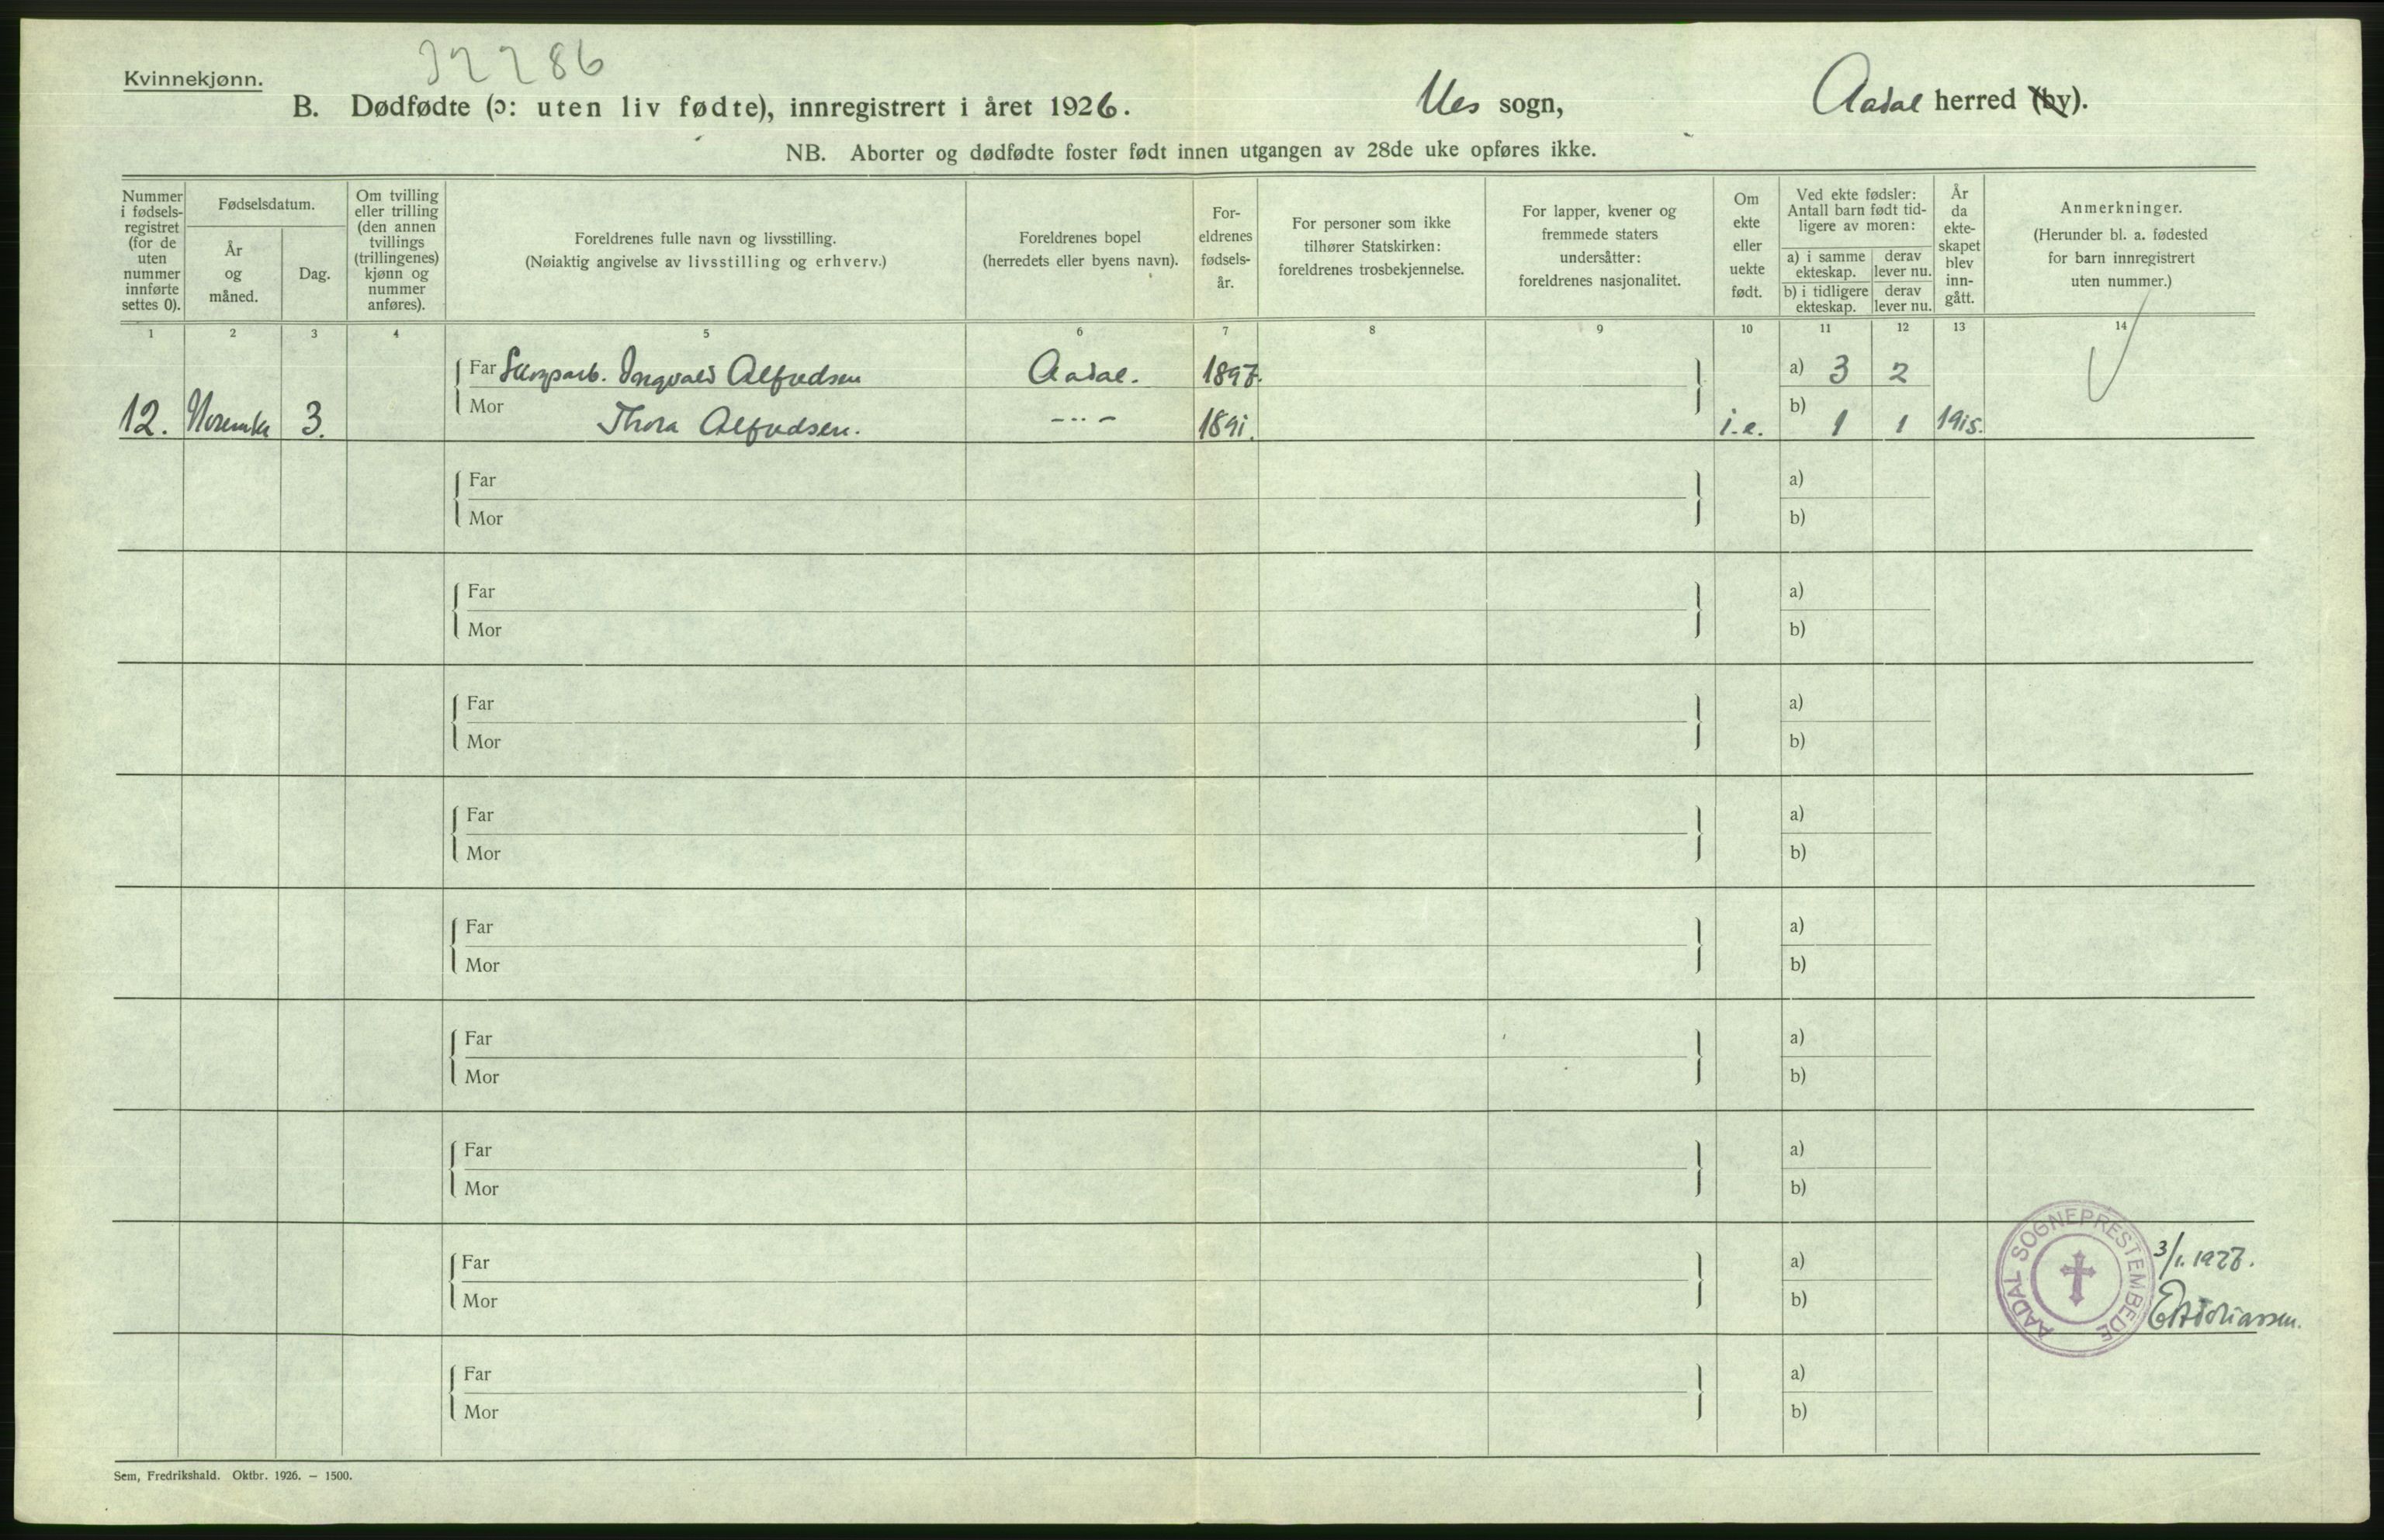 Kvinnekjønn.
B. Dødfødte (ɔ: uten liv fødte), innregistrert i året 1926. Ues sogn, Aadal herred (by).
NB. Aborter og dødfødte foster født innen utgangen av 28de uke opføres ikke.
Nummer i fødsels-registret (for de uten nummer innførte settes 0).
Fødselsdatum.
År og måned.
Dag.
Om tvilling eller trilling (den annen tvillings (trillingenes) kjønn og nummer anføres).
Foreldrenes fulle navn og livsstilling.
(Nøiaktig angivelse av livsstilling og erhverv.)
Foreldrenes bopel
(herredets eller byens navn).
For-eldrenes fødsels-år.
For personer som ikke tilhører Statskirken: foreldrenes trosbekjennelse.
For lapper, kvener og fremmede staters undersåtter: foreldrenes nasjonalitet.
Om ekte eller uekte født.
Ved ekte fødsler: Antall barn født tid-ligere av moren:
a) i samme ekteskap. derav lever nu.
b) i tidligere ekteskap. derav lever nu.
År da ekte-skapet blev inn-gått.
Anmerkninger.
(Herunder bl. a. fødested for barn innregistrert uten nummer.)
1 2 3 4 5 6 7 8 9 10 11 12 13 14
Far Skogsarb. Ingvald Alfredsen Aadal. 1897. a) 3 2
12. 3. Mor Thora Alfredsen. -"- 1891. i.e. b) 1 1 1915.
Far a)
Mor b)
Far a)
Mor b)
Far a)
Mor b)
Far a)
Mor b)
Far a)
Mor b)
Far a)
Mor b)
Far a)
Mor b)
Far a)
Mor b)
Far a)
Mor b)
AADAL SOGNEPRESTEMBEDE
3/1. 1927.
Sem, Fredrikshald. Oktbr. 1926. — 1500.